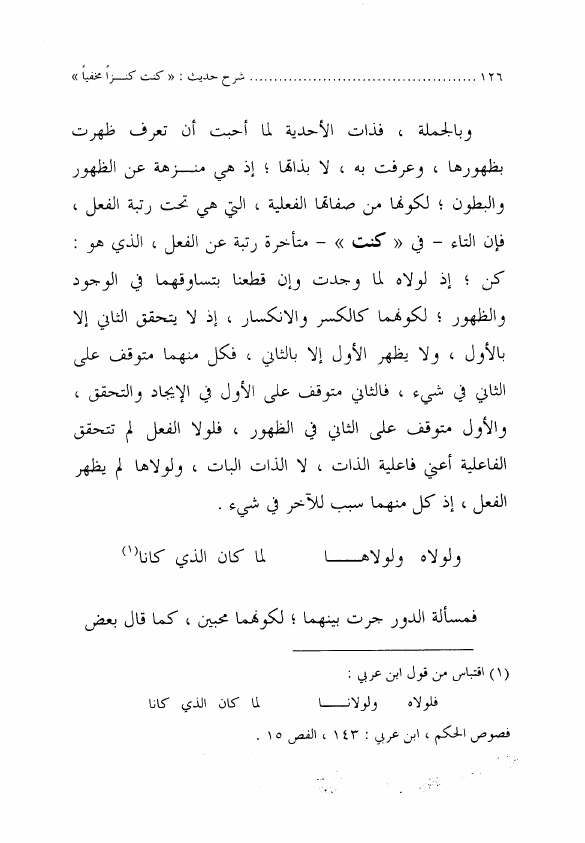 ١٢٦ .............................................. شرح حديث : « كنت كنـزاً مخفياً »
وبالجملة ، فذات الأحدية لما أحبت أن تعرف ظهرت
بظهورها ، وعرفت به ، لا بذاتها ؛ إذ هي منـزهة عن الظهور
والبطون ؛ لكونها من صفاتها الفعلية ، التي هي تحت رتبة الفعل ،
فإن التاء – في « كنت » – متأخرة رتبة عن الفعل ، الذي هو :
كن ؛ إذ لولاه لما وجدت وإن قطعنا بتساوقهما في الوجود
والظهور ؛ لكونهما كالكسر والانكسار ، إذ لا يتحقق الثاني إلا
بالأول ، ولا يظهر الأول إلا بالثاني ، فكل منهما متوقف على
الثاني في شيء ، فالثاني متوقف على الأول في الإيجاد والتحقق ،
والأول متوقف على الثاني في الظهور ، فلولا الفعل لم تتحقق
الفاعلية أعني فاعلية الذات ، لا الذات البات ، ولولاها لم يظهر
الفعل ، إذ كل منهما سبب للآخر في شيء .
ولولاه ولولاهـــا لما كان الذي كانا(١)
فمسألة الدور جرت بينهما ؛ لكونهما محبين ، كما قال بعض
(١) اقتباس من قول ابن عربي :
فلولاه ولولانـــا لما كان الذي كانا
فصوص الحكم ، ابن عربي : ١٤٣ ، الفص ١٥ .